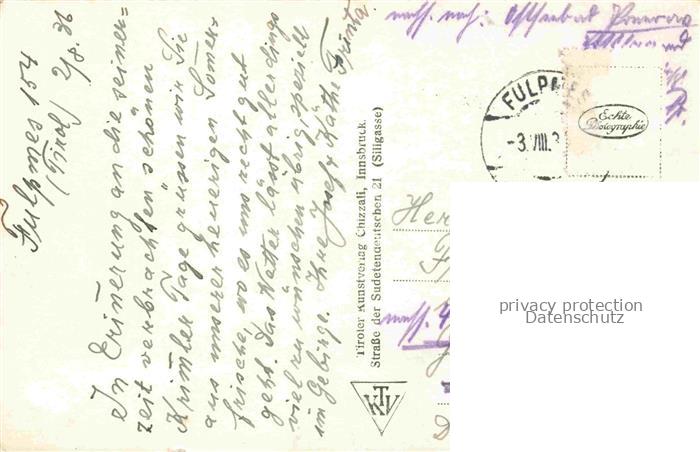 Fulpmes 154
(Tirol) 2/8. 36
In Erinerung an die seiner-
zeit verbrachten schönen
Krimler Tage grüssen wir Sie
aus unserer heurigen Somer-
frische, wo es uns recht gut
geht. Das Wetter lässt allerdings
viel zu wünschen übrig speziell
im Gebirge. Ihre Josef u Käthe Frinta
Tiroler Kunstverlag Chizzali, Innsbruck,
Straße der Sudetendeutschen 21 (Sillgasse)
TKV
nach. nach: Ostseebad
FULPMES
-3.VIII.3
Echte
Photographie
Her
nach. 4
D
privacy protection
Datenschutz